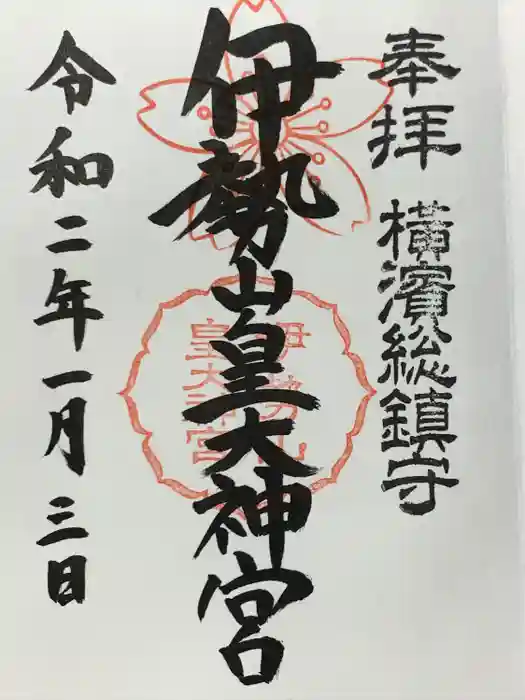 奉拝 横濱総鎮守
伊勢山皇大神宮
伊勢山
皇大神宮
令和二年一月三日